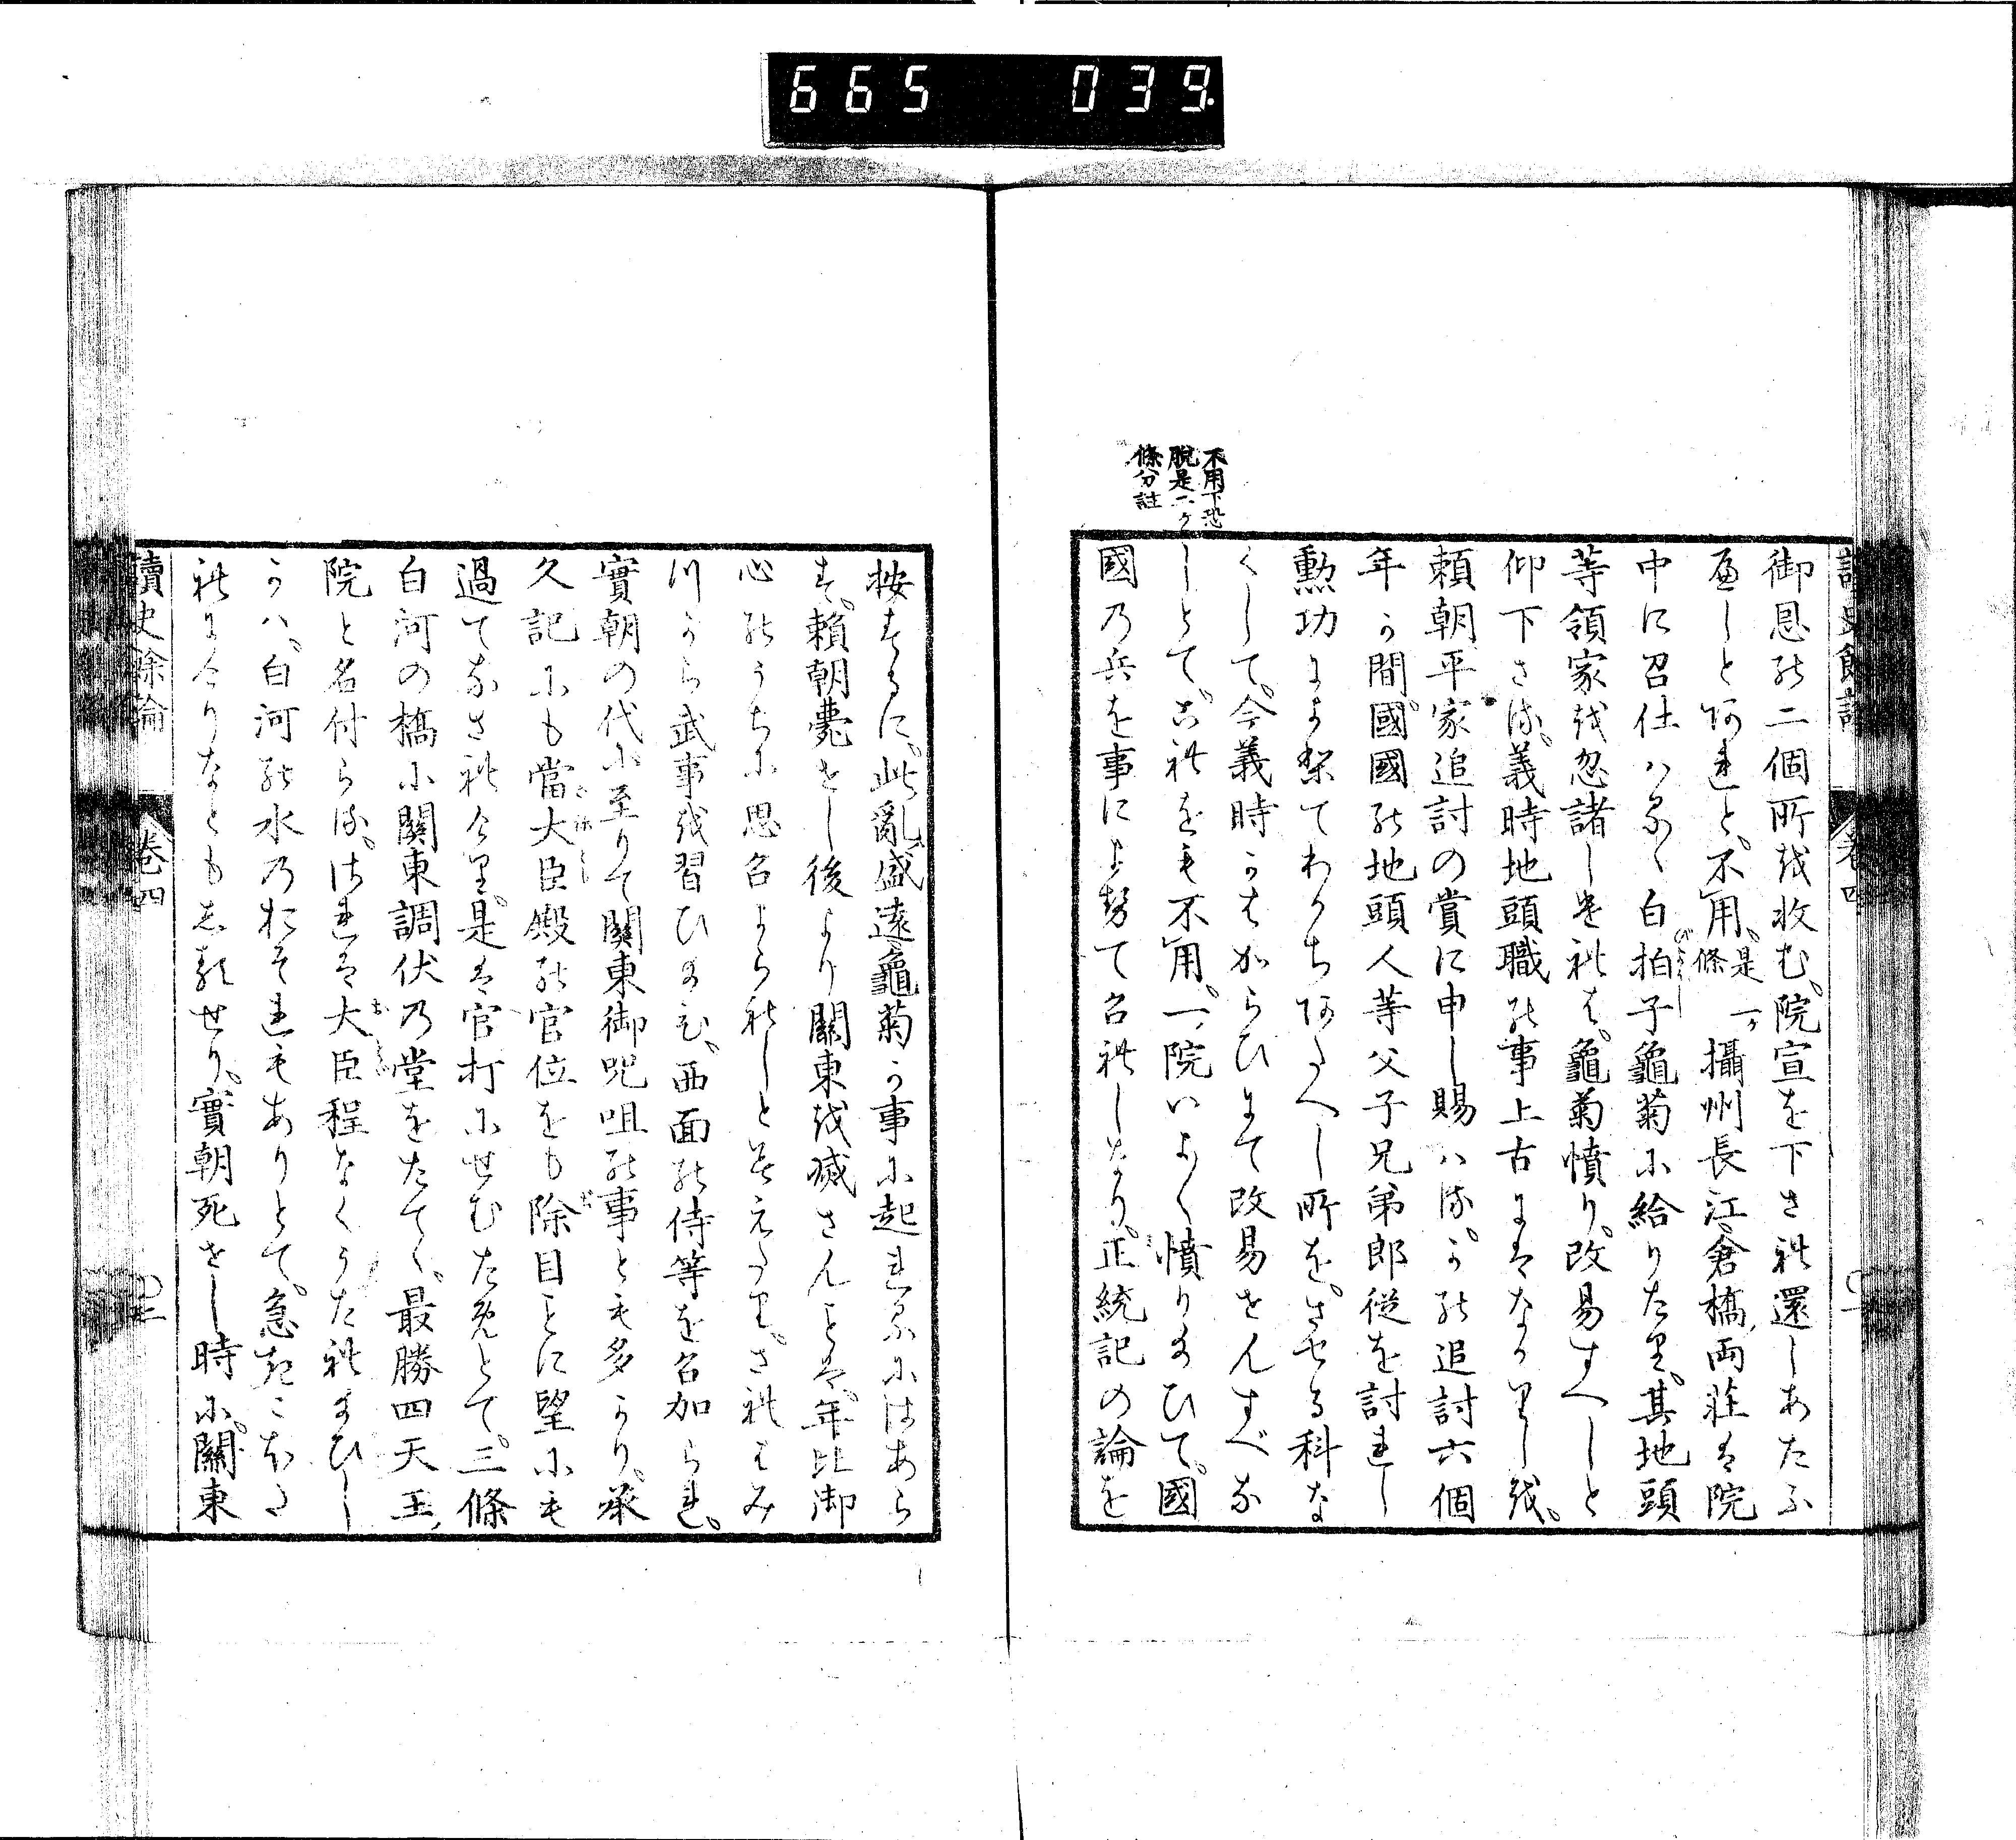 665 039
讀史餘論 卷四
不用下恐
脱是二ケ
條分註
御恩の二個所を收む。院宣を下され還しあたふ
べしとあれと、不用。是一ケ條 攝州長江、倉橋、両莊は院
中に召仕はるゝ白拍子龜菊に給りたり。其地頭
等領家を忽諸しければ、龜菊憤り、改易すへしと
仰下さる。義時地頭職の事上古はなかりしを。
頼朝平家追討の賞に申し賜はる。かの追討六個
年か間。國國の地頭人等父子兄弟郎従を討れし
勲功によりてわかちあたへし所を。させる科な
くして。今義時かはからひにて改易せんすべな
しとて。これをも不用。一院いよ〳〵憤り給ひて。國
國乃兵を事によせて召れしなり。正統記の論を
按するに。此亂盛遠龜菊か事に起れるにはあら
す。頼朝薨せし後より關東を滅さんとは、年比御
心のうちに思召よられしと見えたり。されはみ
川から武事を習ひ給ひ。西面の侍等を召加られ。
實朝の代に至りて關東御咒咀の事とも多かり。承
久記にも當大臣殿の官位をも除目ことに望にも
過てなされけり。是は官打にせむためとて。三條
白河の橋に關東調伏乃堂をたてゝ、最勝四天王
院と名付らる。されは大臣程なくうたれ給ひし
かハ、白河の水乃おそれもありとて。急きこほた
れにけりなともしるせり。實朝死せし時に。關東
讀史餘論 卷四